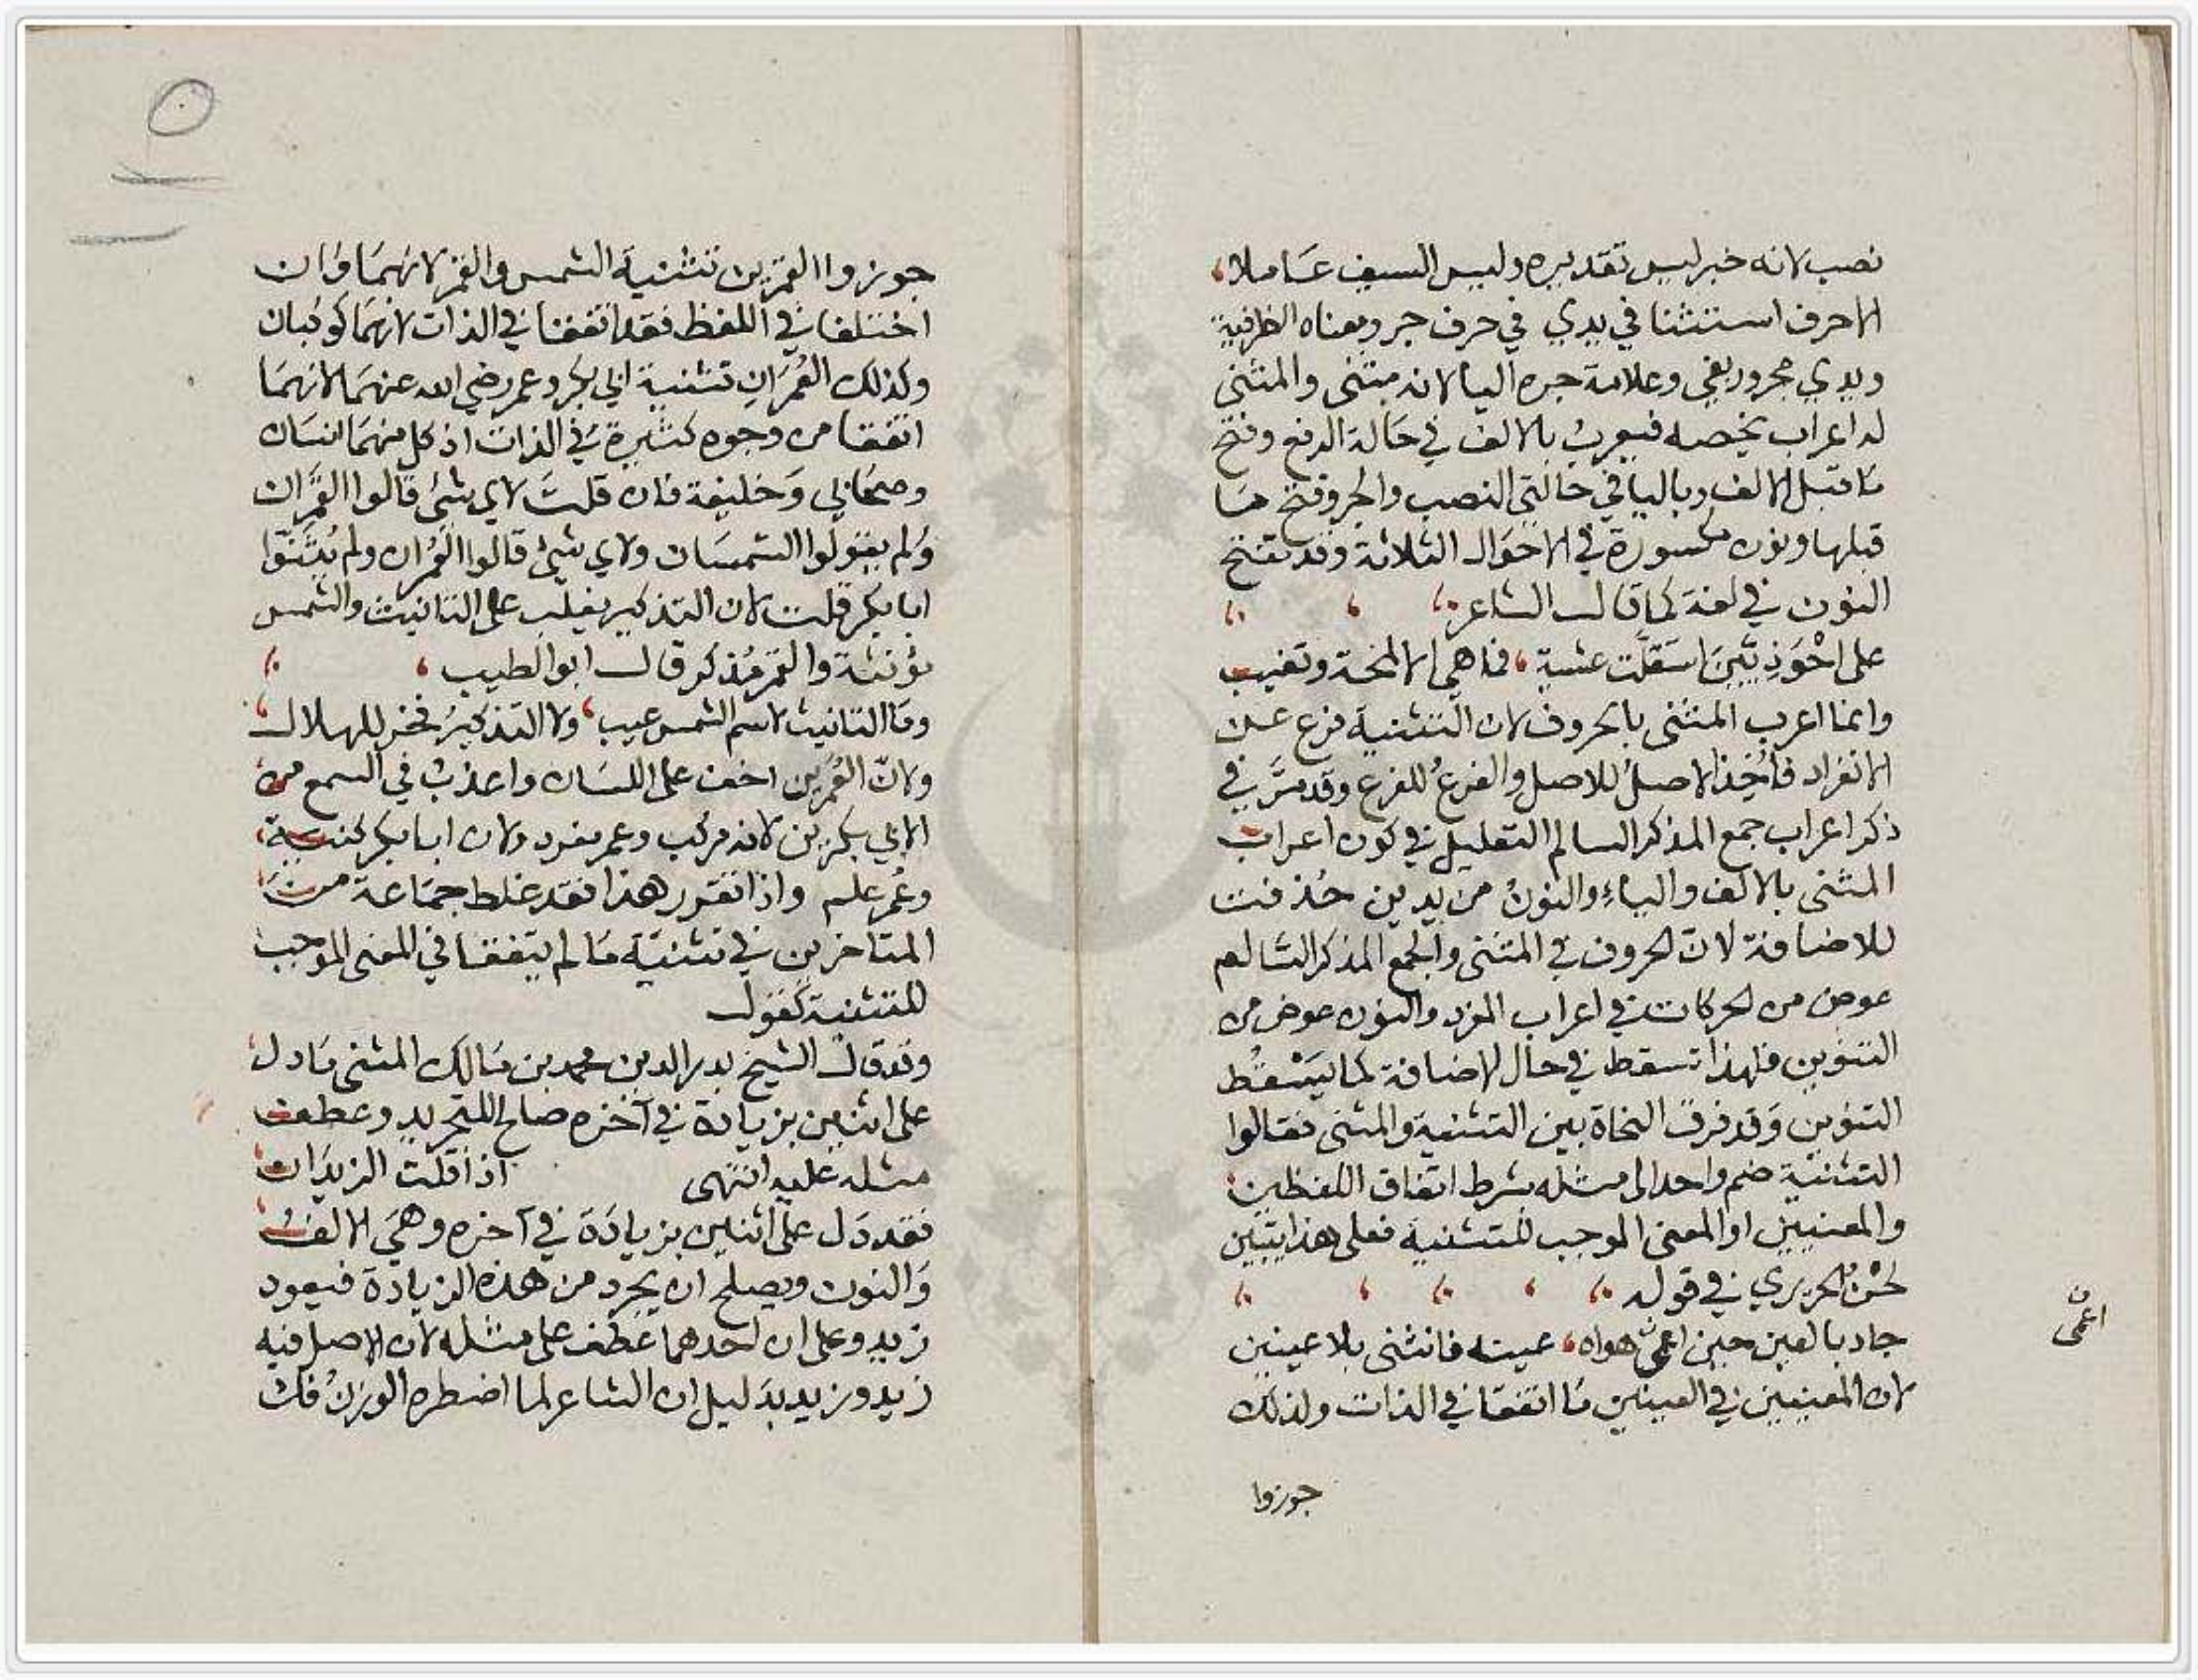 نصب لانه خبر ليس تقديره وليس السيف عاملا
الا حرف استثنا في يدي في حرف جر ومعناه الظرفية
ويدي مجرور بفي وعلامة جره اليا لانه مثنى والمثنى
له اعراب يخصه فيعرب بالالف في حالة الرفع وفتح
ما قبل الالف وباليا في حالتي النصب والجر وفتح ما
قبلها ونون مكسورة في الاحوال الثلاثة وقد تفتح
النون في لغة كما قال الشاعر
على احوذيين استقلت عشية فما هي الا لمحة وتغيب
وانما اعرب المثنى بالحروف لان التثنية فرع عن
الانفراد فأخذ الاصل للاصل والفرع للفرع وقد مر في
ذكر اعراب جمع المذكر السالم التعليل في كون اعراب
المثنى بالالف والياء والنون من يدين حذفت
للاضافة لان الحروف في المثنى والجمع المذكر السالم
عوض من الحركات في اعراب المفرد والنون عوض من
التنوين فلهذا تسقط في حال الاضافة كما يسقط
التنوين وقد فرق النحاة بين التثنية والمثنى فقالوا
التثنية ضم واحد الى مثله بشرط اتفاق اللفظين
والمعنيين او المعنى الموجب للتثنية فعلى هذا يتبين
لحن الحريري في قوله
جاد بالعين حين اعمى هواه عينه فانثنى بلا عينين
اعمى
لان المعنيين في العينين ما اتفقا في الذات ولذلك
جوزوا
جوزوا القمرين تثنية الشمس والقمر لانهما وان
اختلفا في اللفظ فقد اتفقا في الذات لانهما كوكبان
وكذلك العمران تثنية ابي بكر وعمر رضي الله عنهما لانهما
اتفقا من وجوه كثيرة في الذات اذ كل منهما انسان
وصحابي وخليفة فان قلت لاي شئ قالوا القمران
ولم يقولوا الشمسان ولاي شئ قالوا العمران ولم يثنوا
ابا بكر قلت لان التذكير يغلب على التانيث والشمس
مؤنثة والقمر مذكر قال ابو الطيب
وما التانيث لاسم الشمس عيب ولا التذكير فخر للهلال
ولان العمرين اخف على اللسان واعذب في السمع من
الابي بكرين لانه مركب وعمر مفرد ولان ابا بكر كنية
وعمر علم واذا تقرر هذا فقد غلط جماعة من
المتاخرين في تثنية ما لم يتفقا في المعنى الموجب
للتثنية كقول
وقد قال الشيخ بدر الدين محمد بن مالك المثنى ما دل
على اثنين بزيادة في آخره صالح للتجريد وعطف
مثله عليه انتهى اذا قلت الزيدان
فقد دل على اثنين بزيادة في آخره وهي الالف
والنون ويصلح ان يجرد من هذه الزيادة فيعود
زيد وعلى ان احدهما عطف على مثله لان الاصل فيه
زيد وزيد بدليل ان الشاعر لما اضطره الوزن فك